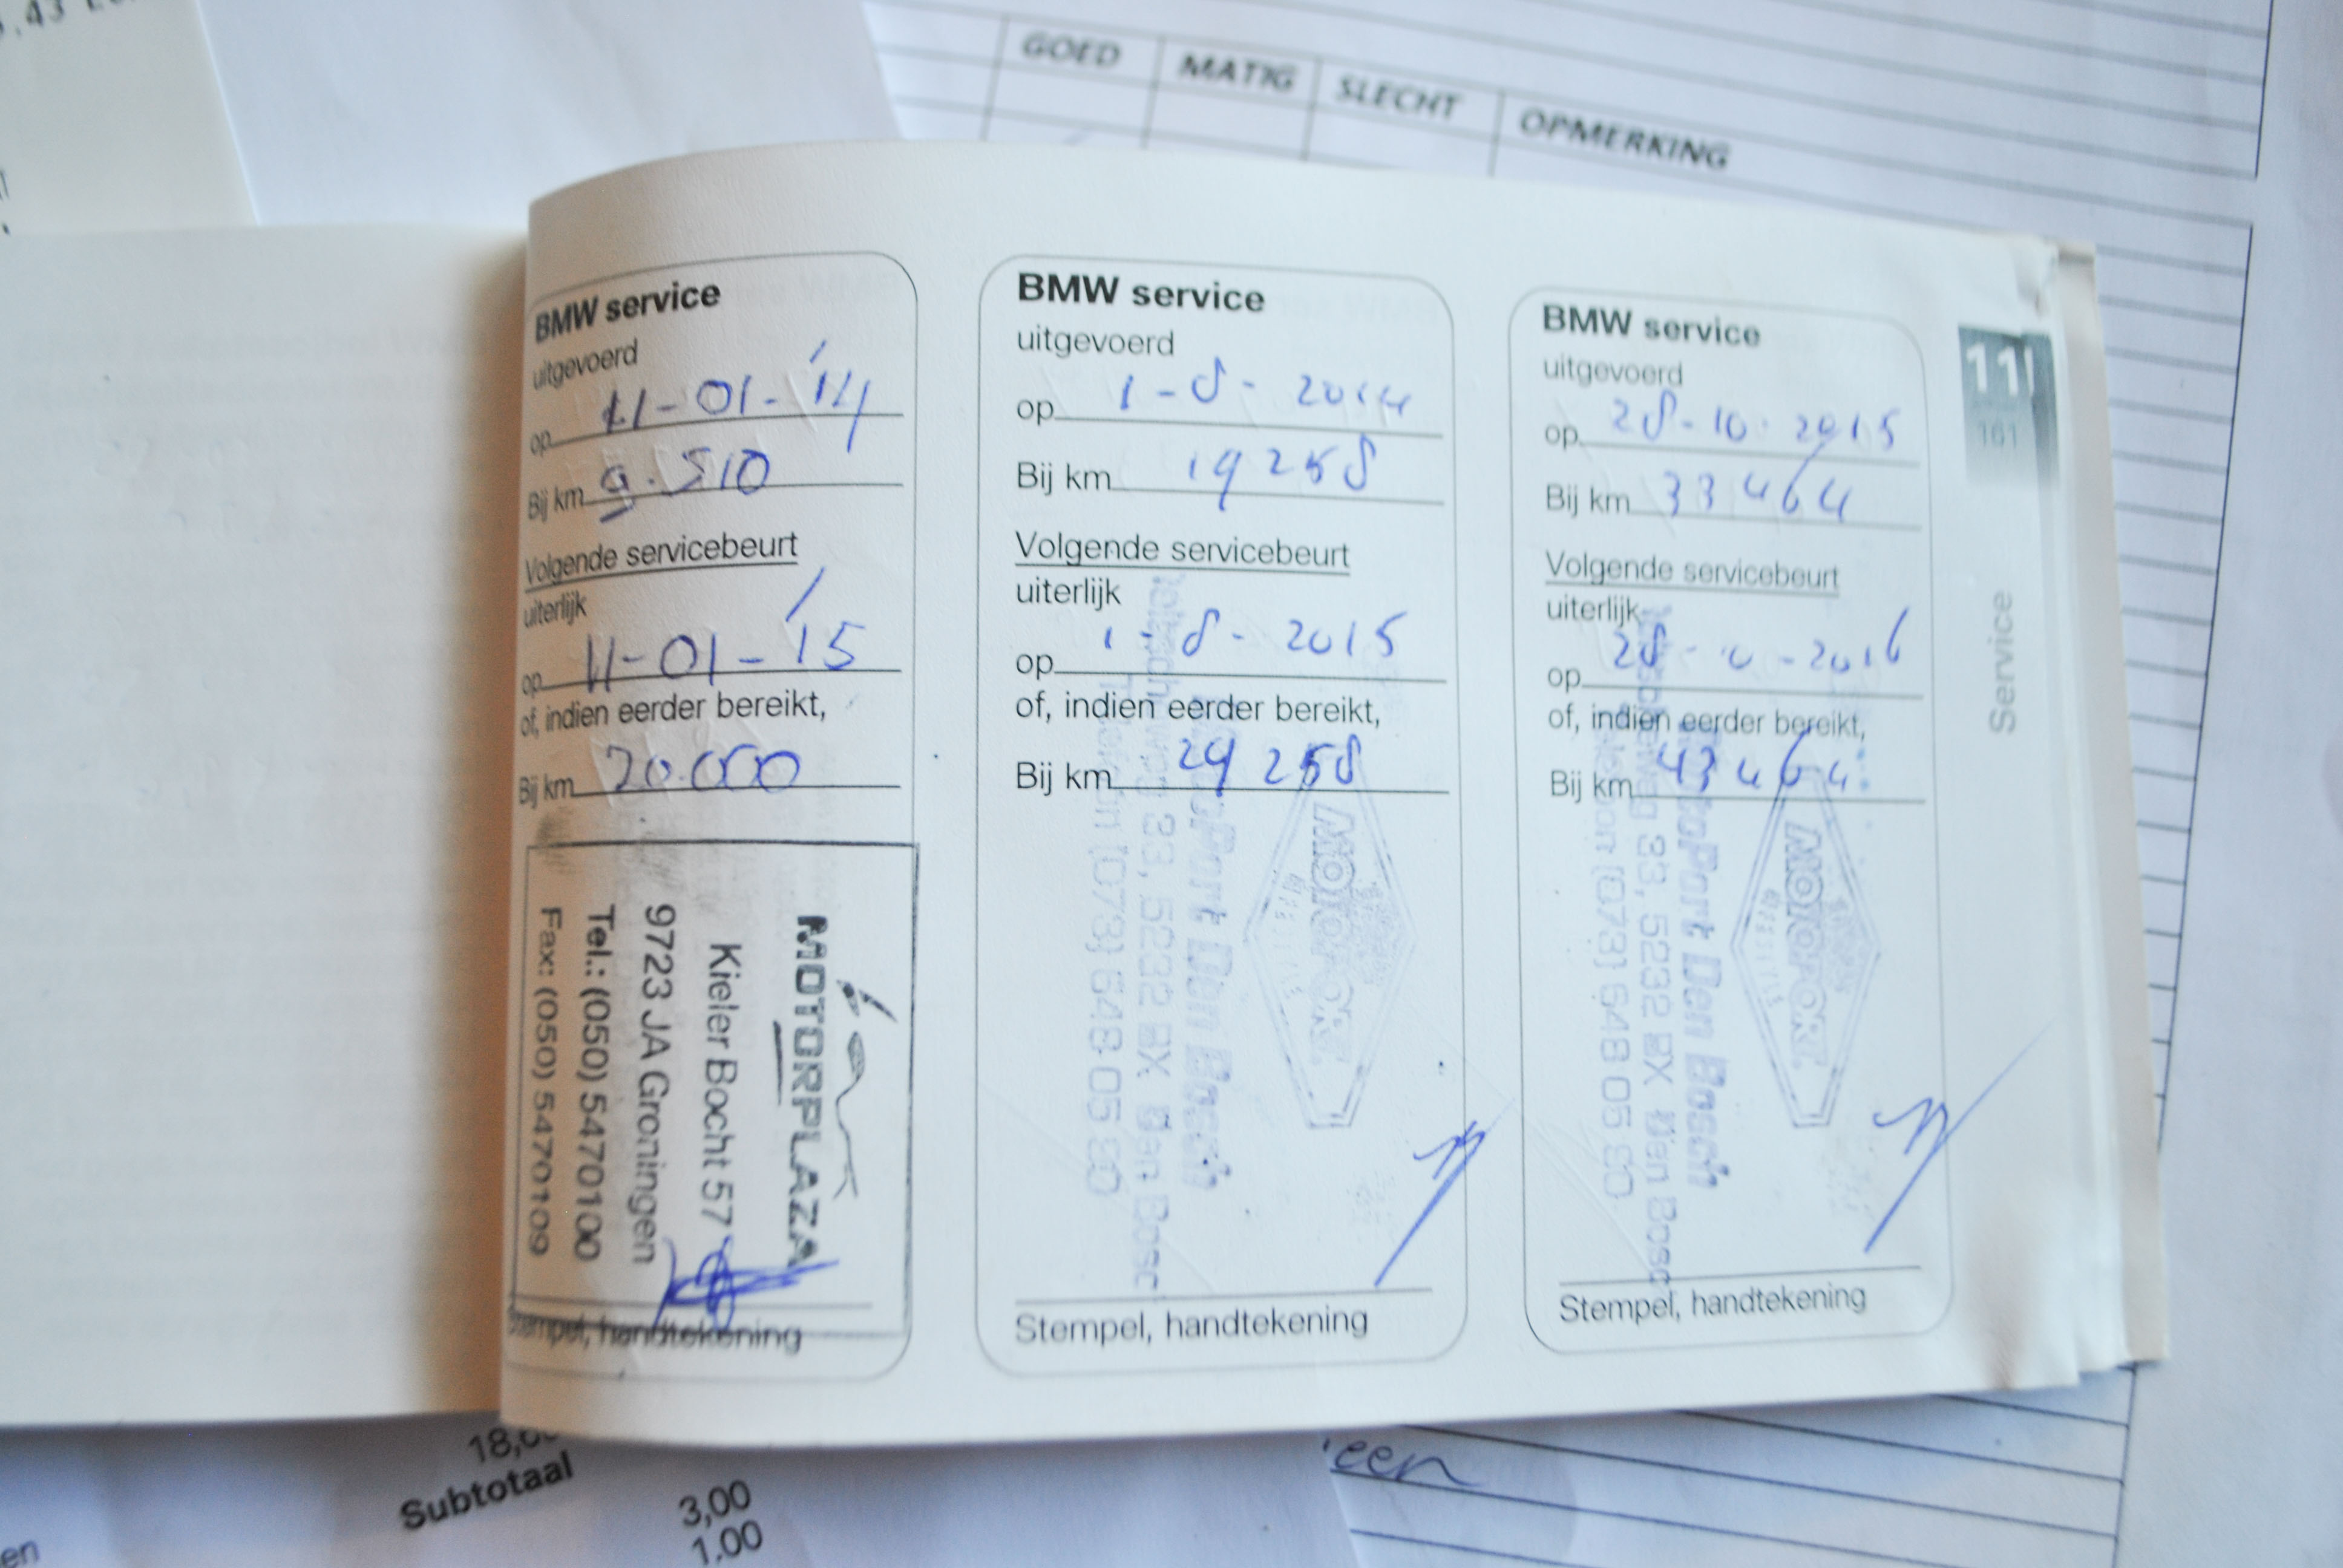 GOED MATIG SLECHT OPMERKING
BMW service
uitgevoerd
op 11-01-'14
Bij km 9.510
Volgende servicebeurt
uiterlijk
op 11-01-'15
of, indien eerder bereikt,
Bij km 20.000
MOTORPLAZA
Kieler Bocht 57
9723 JA Groningen
Tel.: (050) 5470100
Fax: (050) 5470109
Stempel, handtekening
BMW service
uitgevoerd
op 1-8-2014
Bij km 19258
Volgende servicebeurt
uiterlijk
op 1-8-2015
of, indien eerder bereikt,
Bij km 29258
MOTOPORT
MotoPort Den Bosch
33, 5232 BX Den Bosc
(073) 648 05 80
Stempel, handtekening
BMW service
uitgevoerd
op 28-10-2015
Bij km 33464
Volgende servicebeurt
uiterlijk
op 28-10-2016
of, indien eerder bereikt,
Bij km 43464
MOTOPORT
MotoPort Den Bosch
33, 5232 BX Den Bosc
(073) 648 05 80
Stempel, handtekening
11
161
Service
Subtotaal
3,00
1,00
een
en